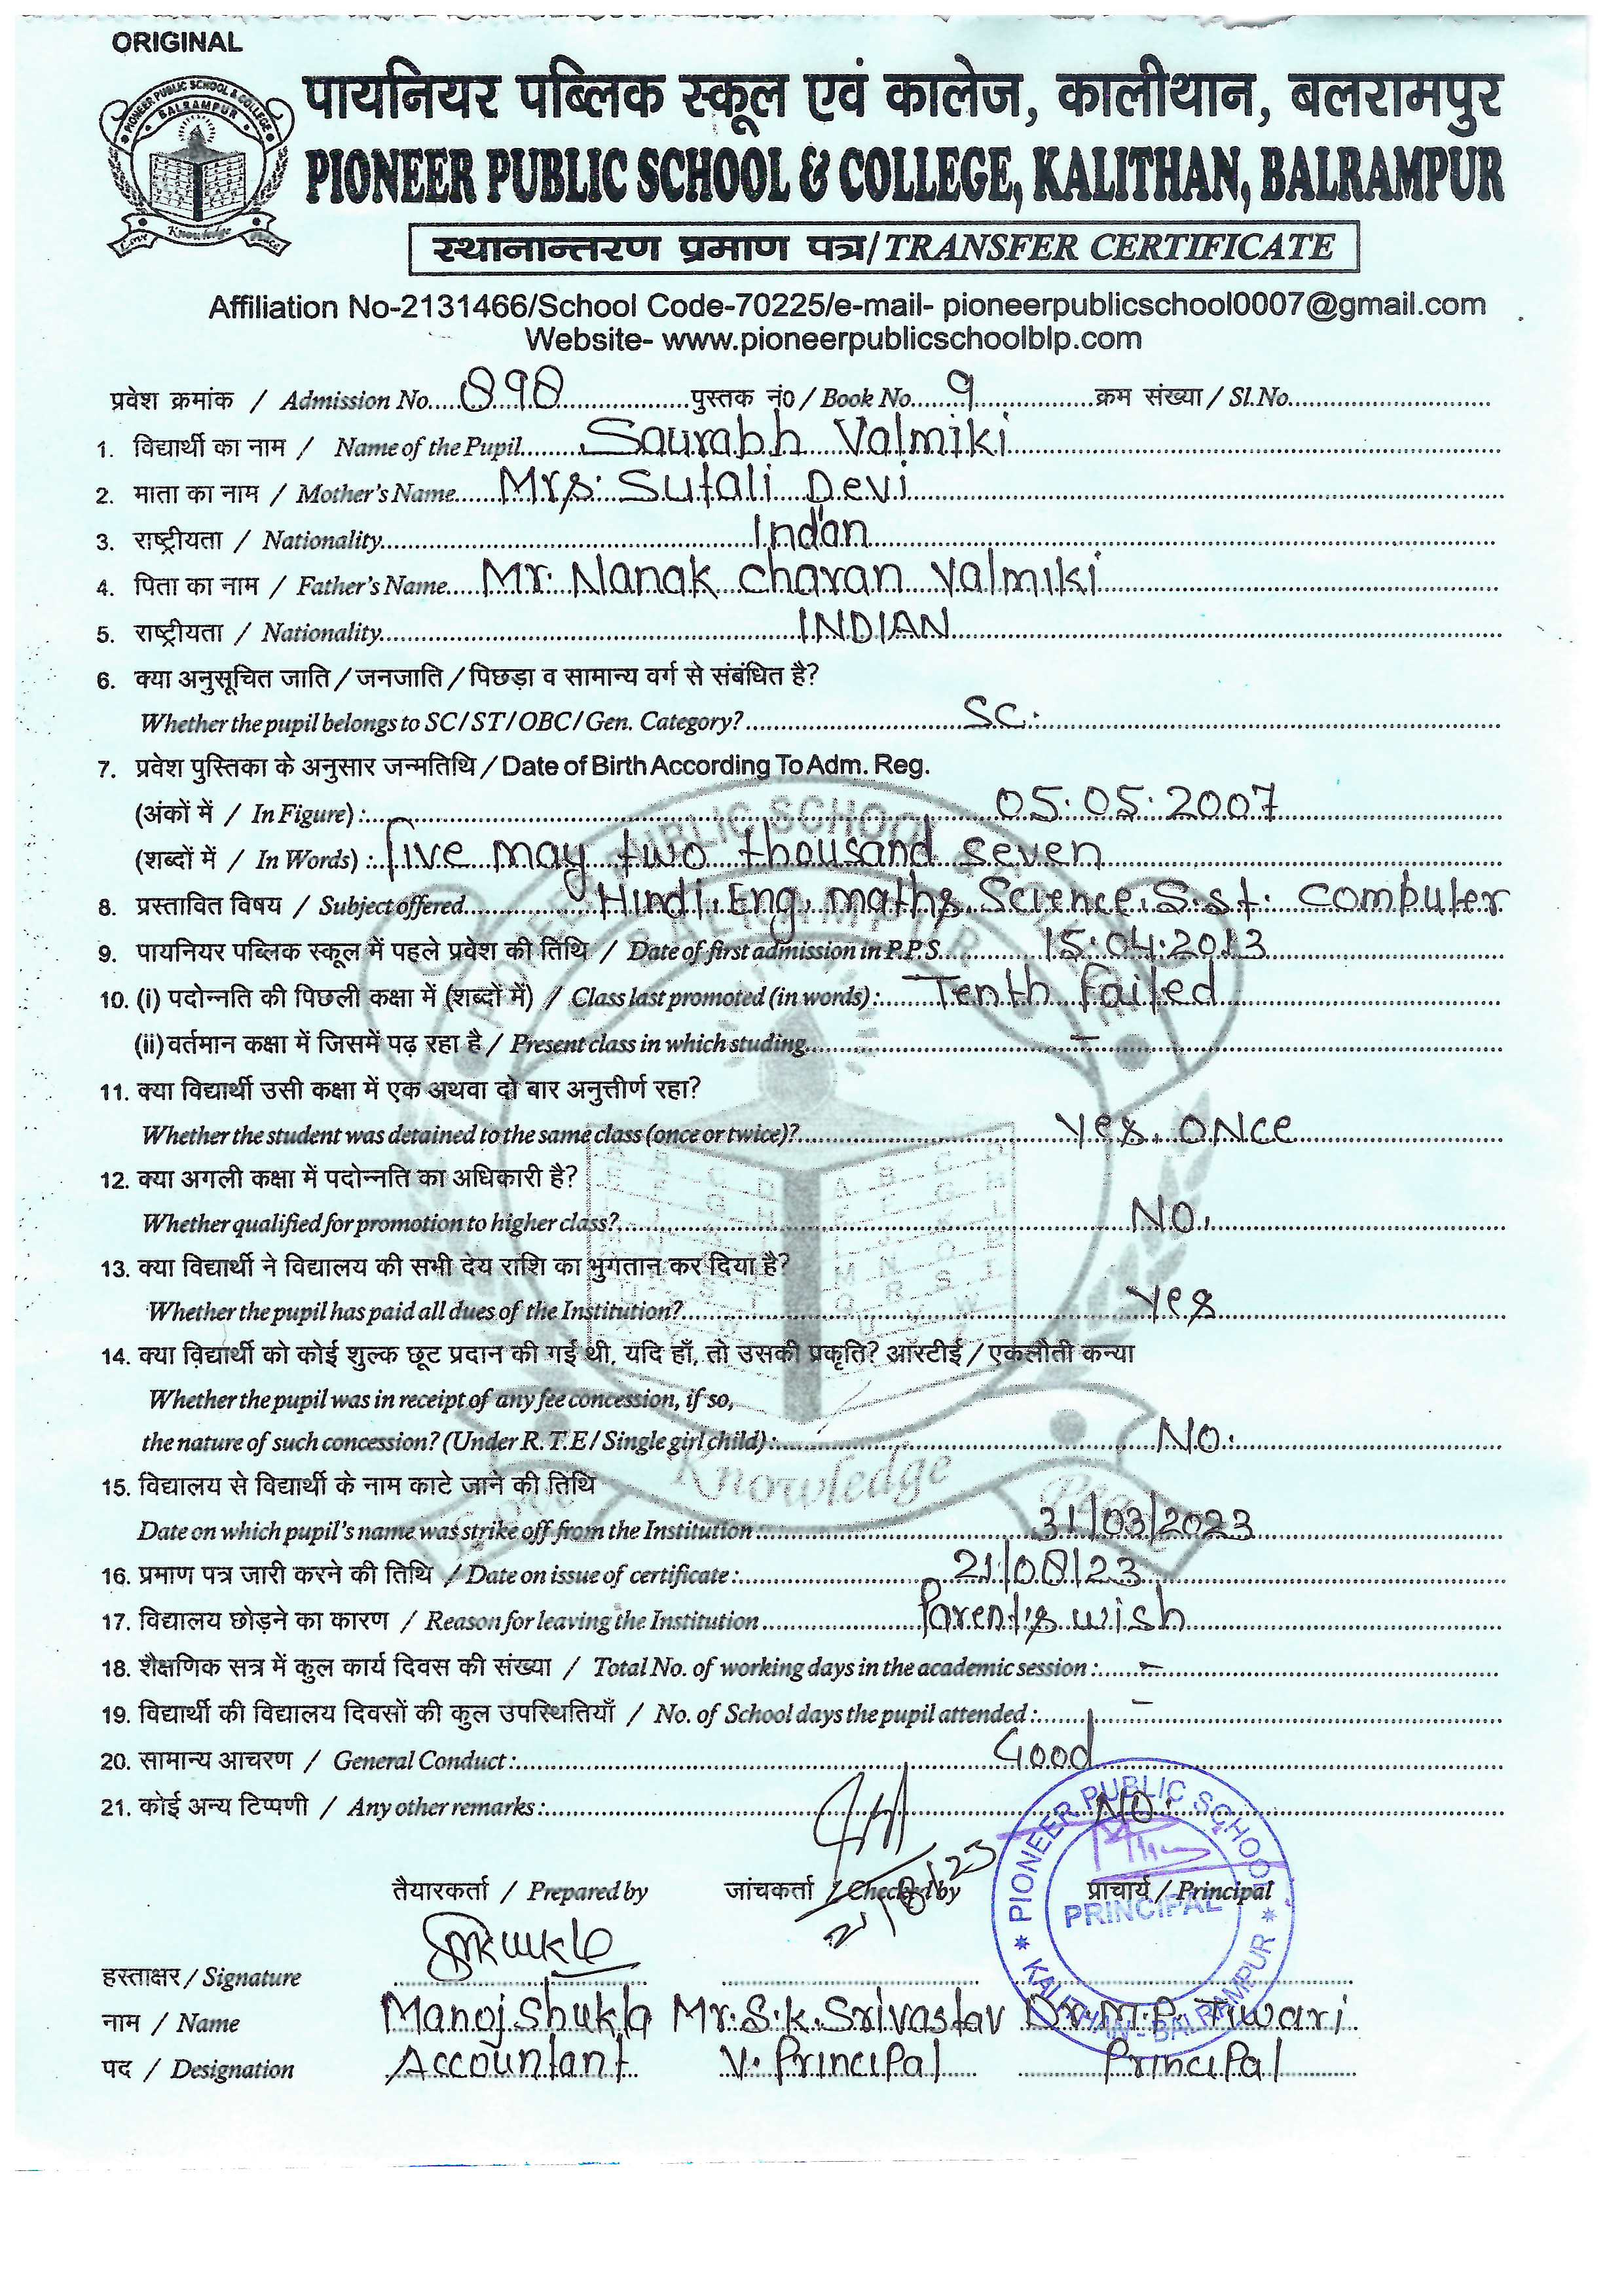 ORIGINAL
PIONEER PUBLIC SCHOOL & COLLEGE
BALRAMPUR
Love Knowledge Peace
पायनियर पब्लिक स्कूल एवं कालेज, कालीथान, बलरामपुर
PIONEER PUBLIC SCHOOL & COLLEGE, KALITHAN, BALRAMPUR
स्थानान्तरण प्रमाण पत्र/TRANSFER CERTIFICATE
Affiliation No-2131466/School Code-70225/e-mail- pioneerpublicschool0007@gmail.com
Website- www.pioneerpublicschoolblp.com
प्रवेश क्रमांक / Admission No. 898 पुस्तक नं0 / Book No. 9 क्रम संख्या / Sl.No.
1. विद्यार्थी का नाम / Name of the Pupil. Saurabh Valmiki
2. माता का नाम / Mother's Name. Mrs. Sutali Devi
3. राष्ट्रीयता / Nationality. Indan
4. पिता का नाम / Father's Name. Mr. Nanak Charan Valmiki
5. राष्ट्रीयता / Nationality. INDIAN
6. क्या अनुसूचित जाति / जनजाति / पिछड़ा व सामान्य वर्ग से संबंधित है?
Whether the pupil belongs to SC / ST / OBC / Gen. Category? SC.
7. प्रवेश पुस्तिका के अनुसार जन्मतिथि / Date of Birth According To Adm. Reg.
(अंकों में / In Figure) : 05.05.2007
(शब्दों में / In Words) : five may two thousand seven
8. प्रस्तावित विषय / Subject offered. Hindi, Eng, maths, Science, S.st. Computer
9. पायनियर पब्लिक स्कूल में पहले प्रवेश की तिथि / Date of first admission in P.P.S. 15.04.2013
10. (i) पदोन्नति की पिछली कक्षा में (शब्दों में) / Class last promoted (in words) : Tenth Failed
(ii) वर्तमान कक्षा में जिसमें पढ़ रहा है / Present class in which studing. -
11. क्या विद्यार्थी उसी कक्षा में एक अथवा दो बार अनुत्तीर्ण रहा?
Whether the student was detained to the same class (once or twice)? Yes. ONCe
12. क्या अगली कक्षा में पदोन्नति का अधिकारी है?
Whether qualified for promotion to higher class? No.
13. क्या विद्यार्थी ने विद्यालय की सभी देय राशि का भुगतान कर दिया है?
Whether the pupil has paid all dues of the Institution? Yes
14. क्या विद्यार्थी को कोई शुल्क छूट प्रदान की गई थी, यदि हाँ, तो उसकी प्रकृति? आरटीई / एकलौती कन्या
Whether the pupil was in receipt of any fee concession, if so,
the nature of such concession? (Under R.T.E / Single girl child) : No.
15. विद्यालय से विद्यार्थी के नाम काटे जाने की तिथि
Date on which pupil's name was strike off from the Institution : 31/03/2023
16. प्रमाण पत्र जारी करने की तिथि / Date on issue of certificate : 21/08/23
17. विद्यालय छोड़ने का कारण / Reason for leaving the Institution Parent's wish
18. शैक्षणिक सत्र में कुल कार्य दिवस की संख्या / Total No. of working days in the academic session : -
19. विद्यार्थी की विद्यालय दिवसों की कुल उपस्थितियाँ / No. of School days the pupil attended : -
20. सामान्य आचरण / General Conduct : Good
21. कोई अन्य टिप्पणी / Any other remarks : NO.
तैयारकर्ता / Prepared by जांचकर्ता / Checked by प्राचार्य / Principal
21/8/23
PIONEER PUBLIC SCHOOL
PRINCIPAL
KALITHAN - BALRAMPUR
हस्ताक्षर / Signature
नाम / Name Manoj Shukla Mr. S.K. Srivastav Dr. M.P. Tiwari
पद / Designation Accountant V. Principal Principal